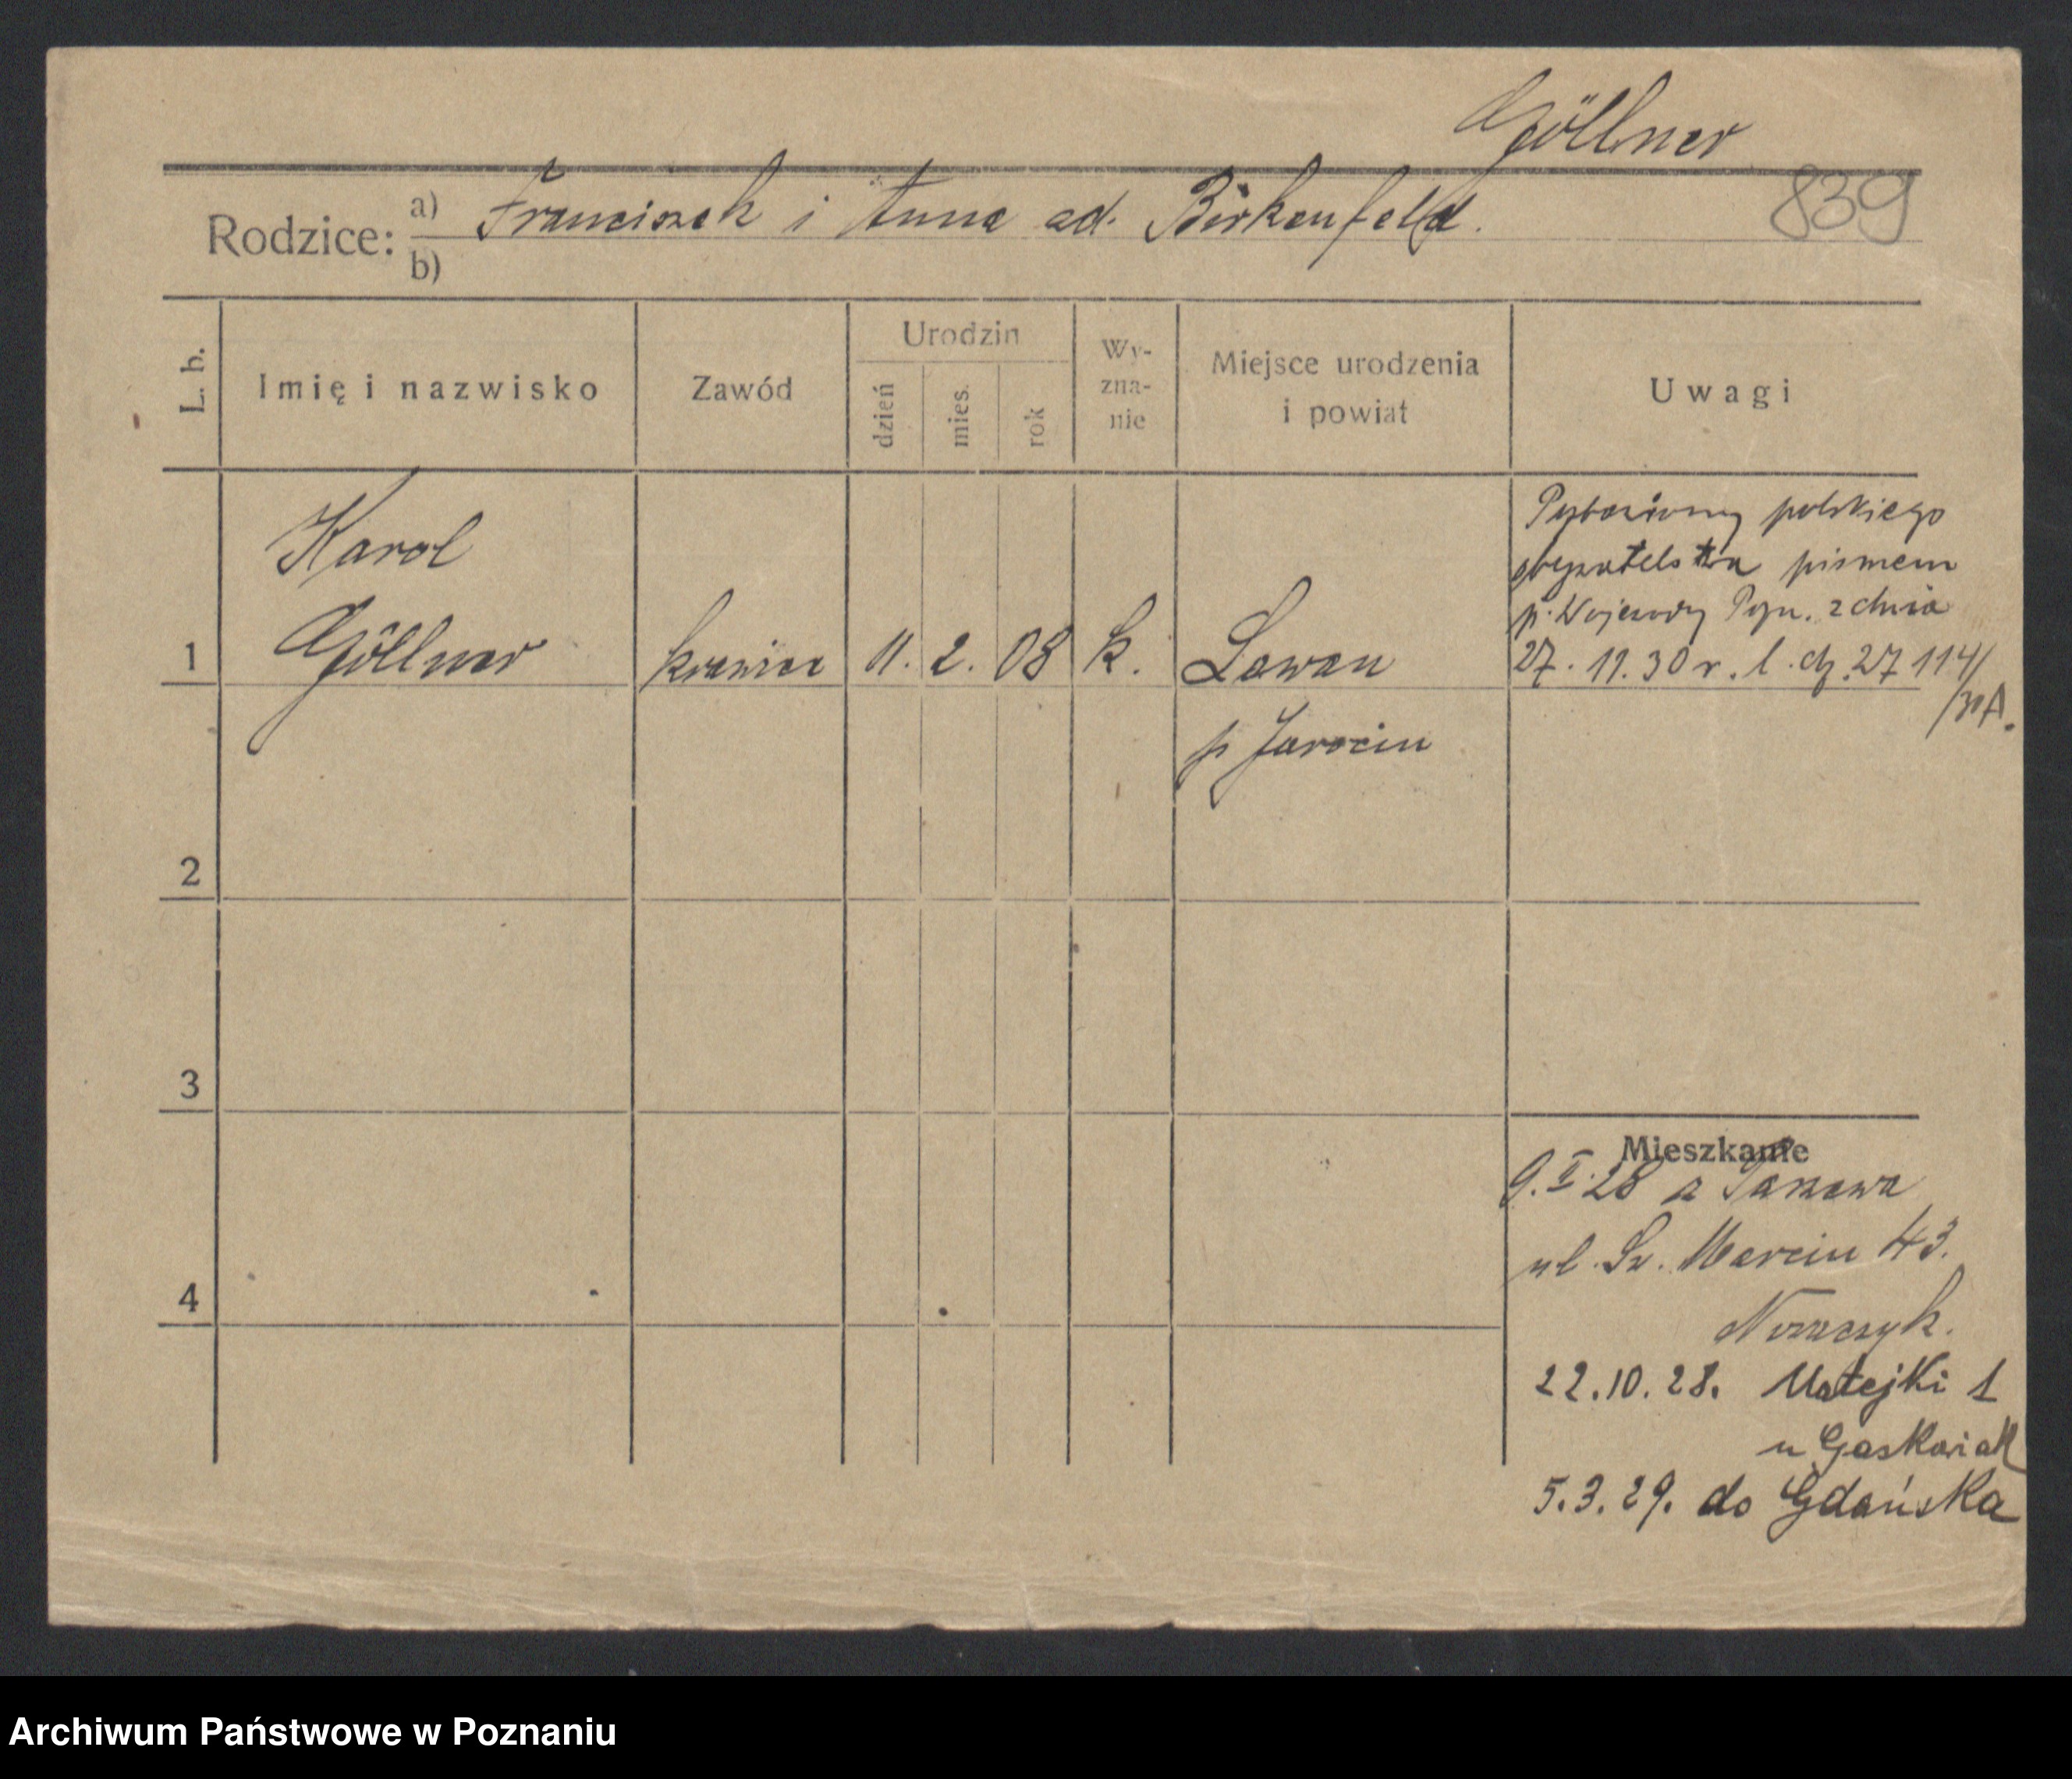 Göllner
839
Rodzice: a) Franciszek i Anna ad. Birkenfeld.
b)
L. b. Imię i nazwisko Zawód Urodzin dzień mies. rok Wy-zna-nie Miejsce urodzenia i powiat Uwagi
Karol
1 Göllner krawiec 11. 2. 08 k.
p Jarocin
polskiego
obywatelstwa pismem
p. Wojewody Pozn. z dnia
27. 11. 30 r. l. dz. 27114/
2
3
4
Mieszkanie
ul. Św. Marcin 43.
22.10.28. Matejki 1
u Gaskowiak
5.3.29. do Gdańska
Archiwum Państwowe w Poznaniu